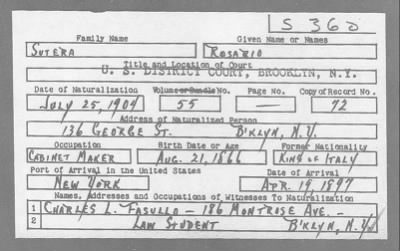 S 360
Family Name Given Name or Names
SUTERA ROSARIO
Title and Location of Court
U. S. DISTRICT COURT, BROOKLYN, N.Y.
Date of Naturalization Volume or Bundle No. Page No. Copy of Record No.
JULY 25, 1904 55 — 72
Address of Naturalized Person
136 GEORGE ST. B'KLYN, N.Y.
Occupation Birth Date or Age Former Nationality
CABINET MAKER AUG. 21, 1866 KING OF ITALY
Port of Arrival in the United States Date of Arrival
NEW YORK APR. 19, 1897
Names, Addresses and Occupations of Witnesses To Naturalization
1 CHARLES L. FASULLO — 186 MONTROSE AVE. —
2 LAW STUDENT B'KLYN, N.Y.